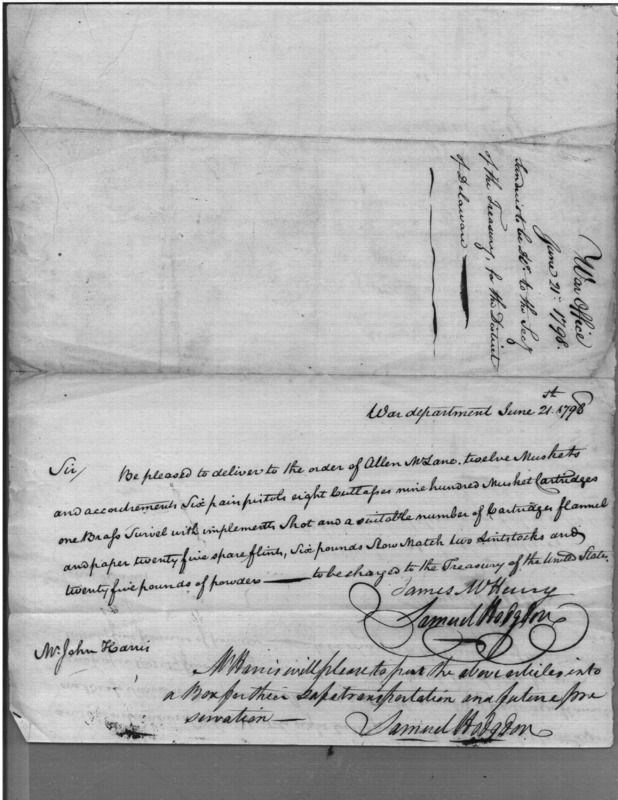 War Office
June 21st 1798.
to be Dd. to the Secy
of the Treasury, for the District
of Delaware
War department June 21st 1798
Sir, Be pleased to deliver to the order of Allen McLane. twelve Muskets
and accordrements Six pair pistols eight Cutlasses nine hundred Musket Cartridges
one Brass Swivel with implements Shot and a suitable number of Cartridges flannel
and paper twenty five spare flints, Six pounds Slow Match two Lintstocks and
twenty five pounds of powder to be charged to the Treasury of the United States.
James McHenry
Samuel Hodgdon
Mr. John Harris
Mr Harris will please to put the above articles into
a Box for their safe transportation and future pre
servation
Samuel Hodgdon